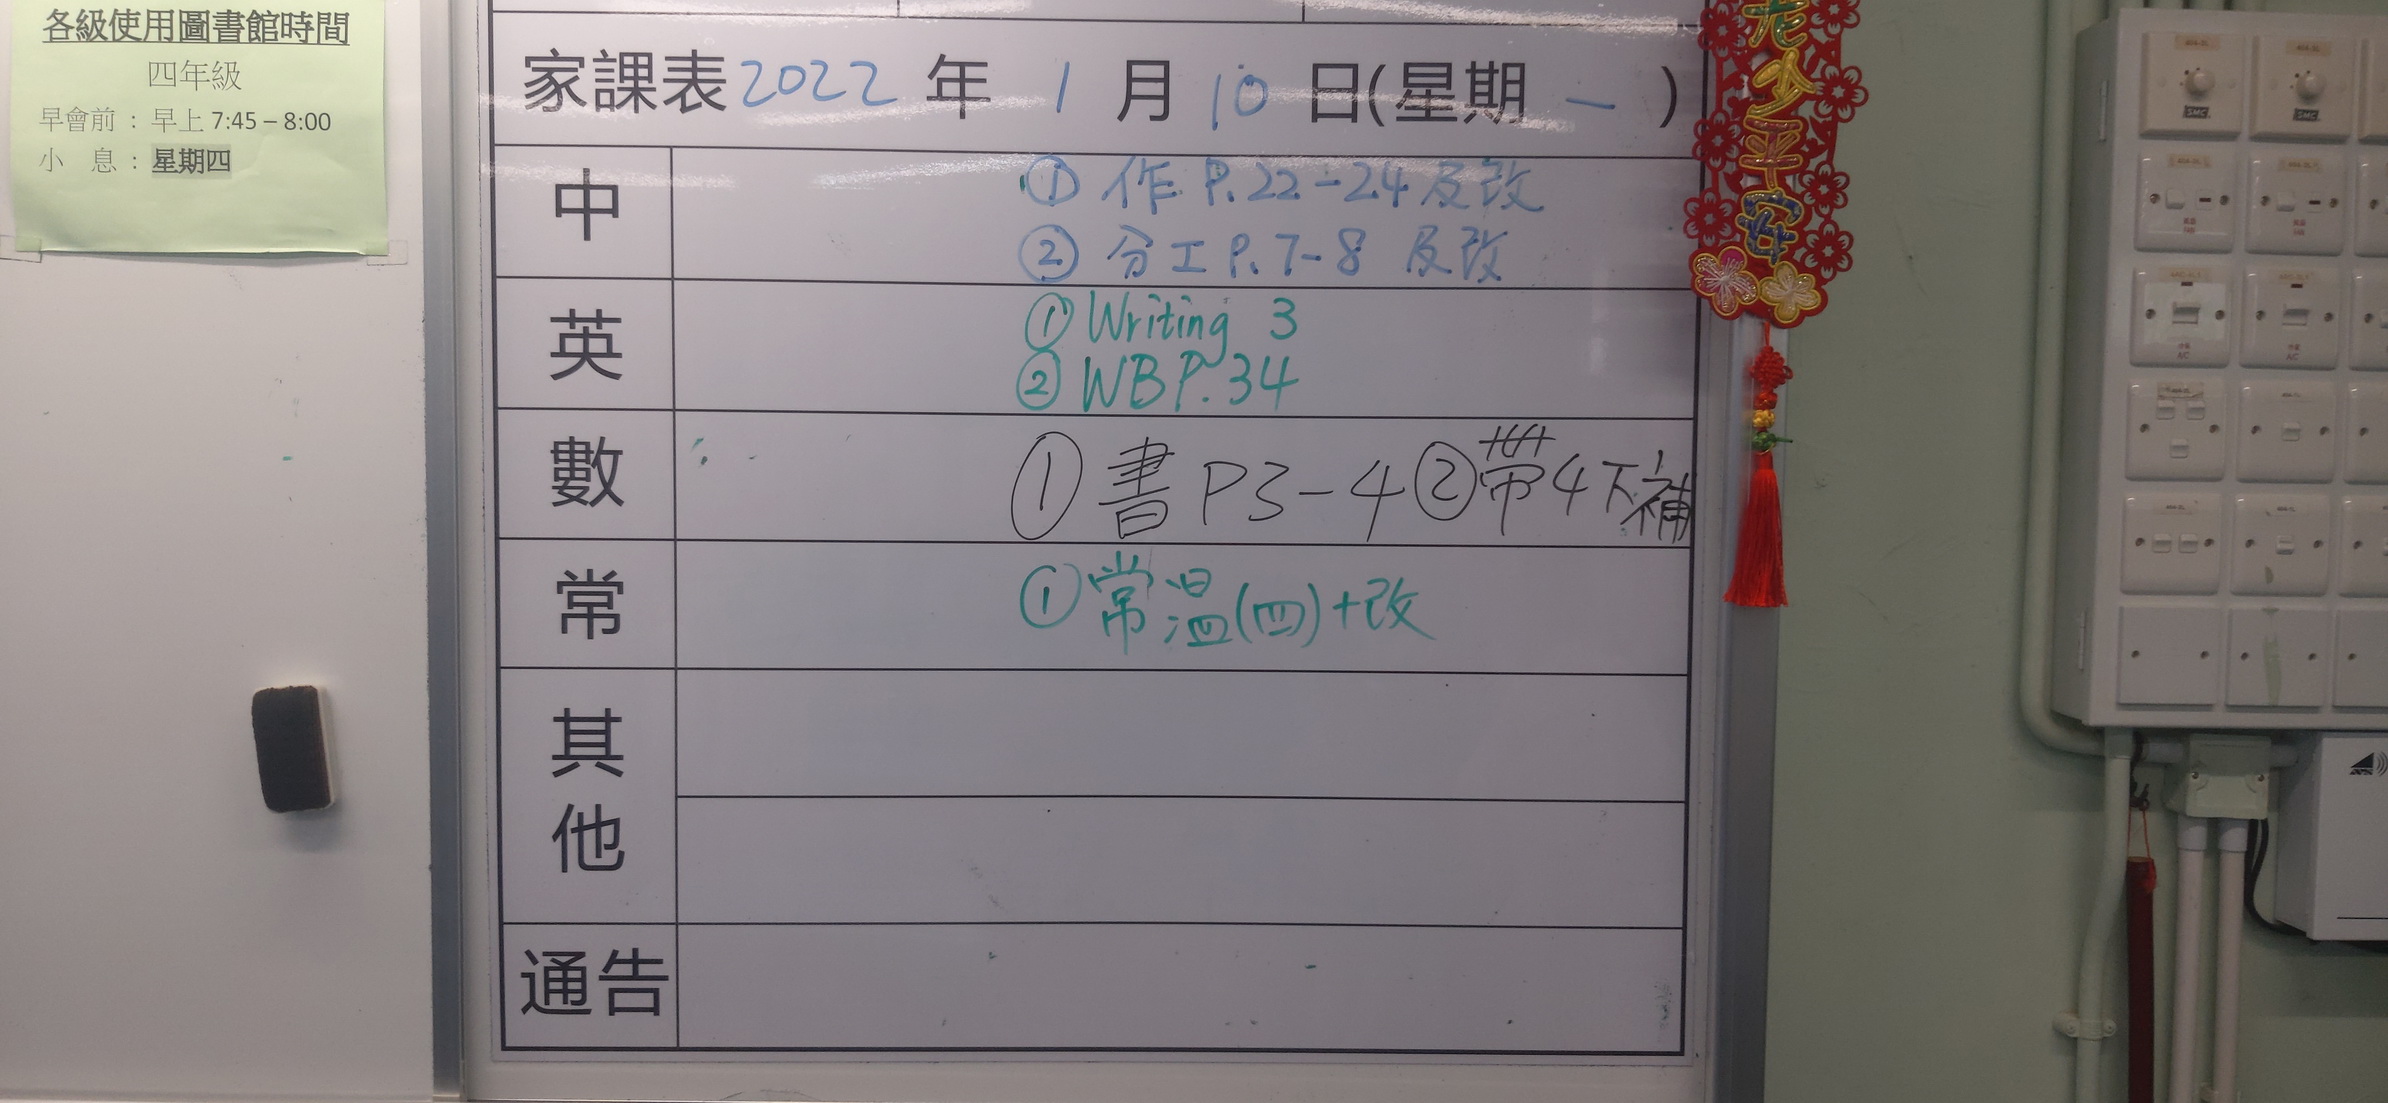 各級使用圖書館時間
四年級
早會前 : 早上 7:45 – 8:00
小 息 : 星期四
家課表 2022 年 1 月 10 日(星期 一 )
中
① 作 P.22-24 及改
② 分工 P.7-8 及改
英
① Writing 3
② WB P.34
數
① 書 P3-4 ② 帶4下補
常
① 常溫(四)+改
其他
通告
老少平安
SMC
SMC